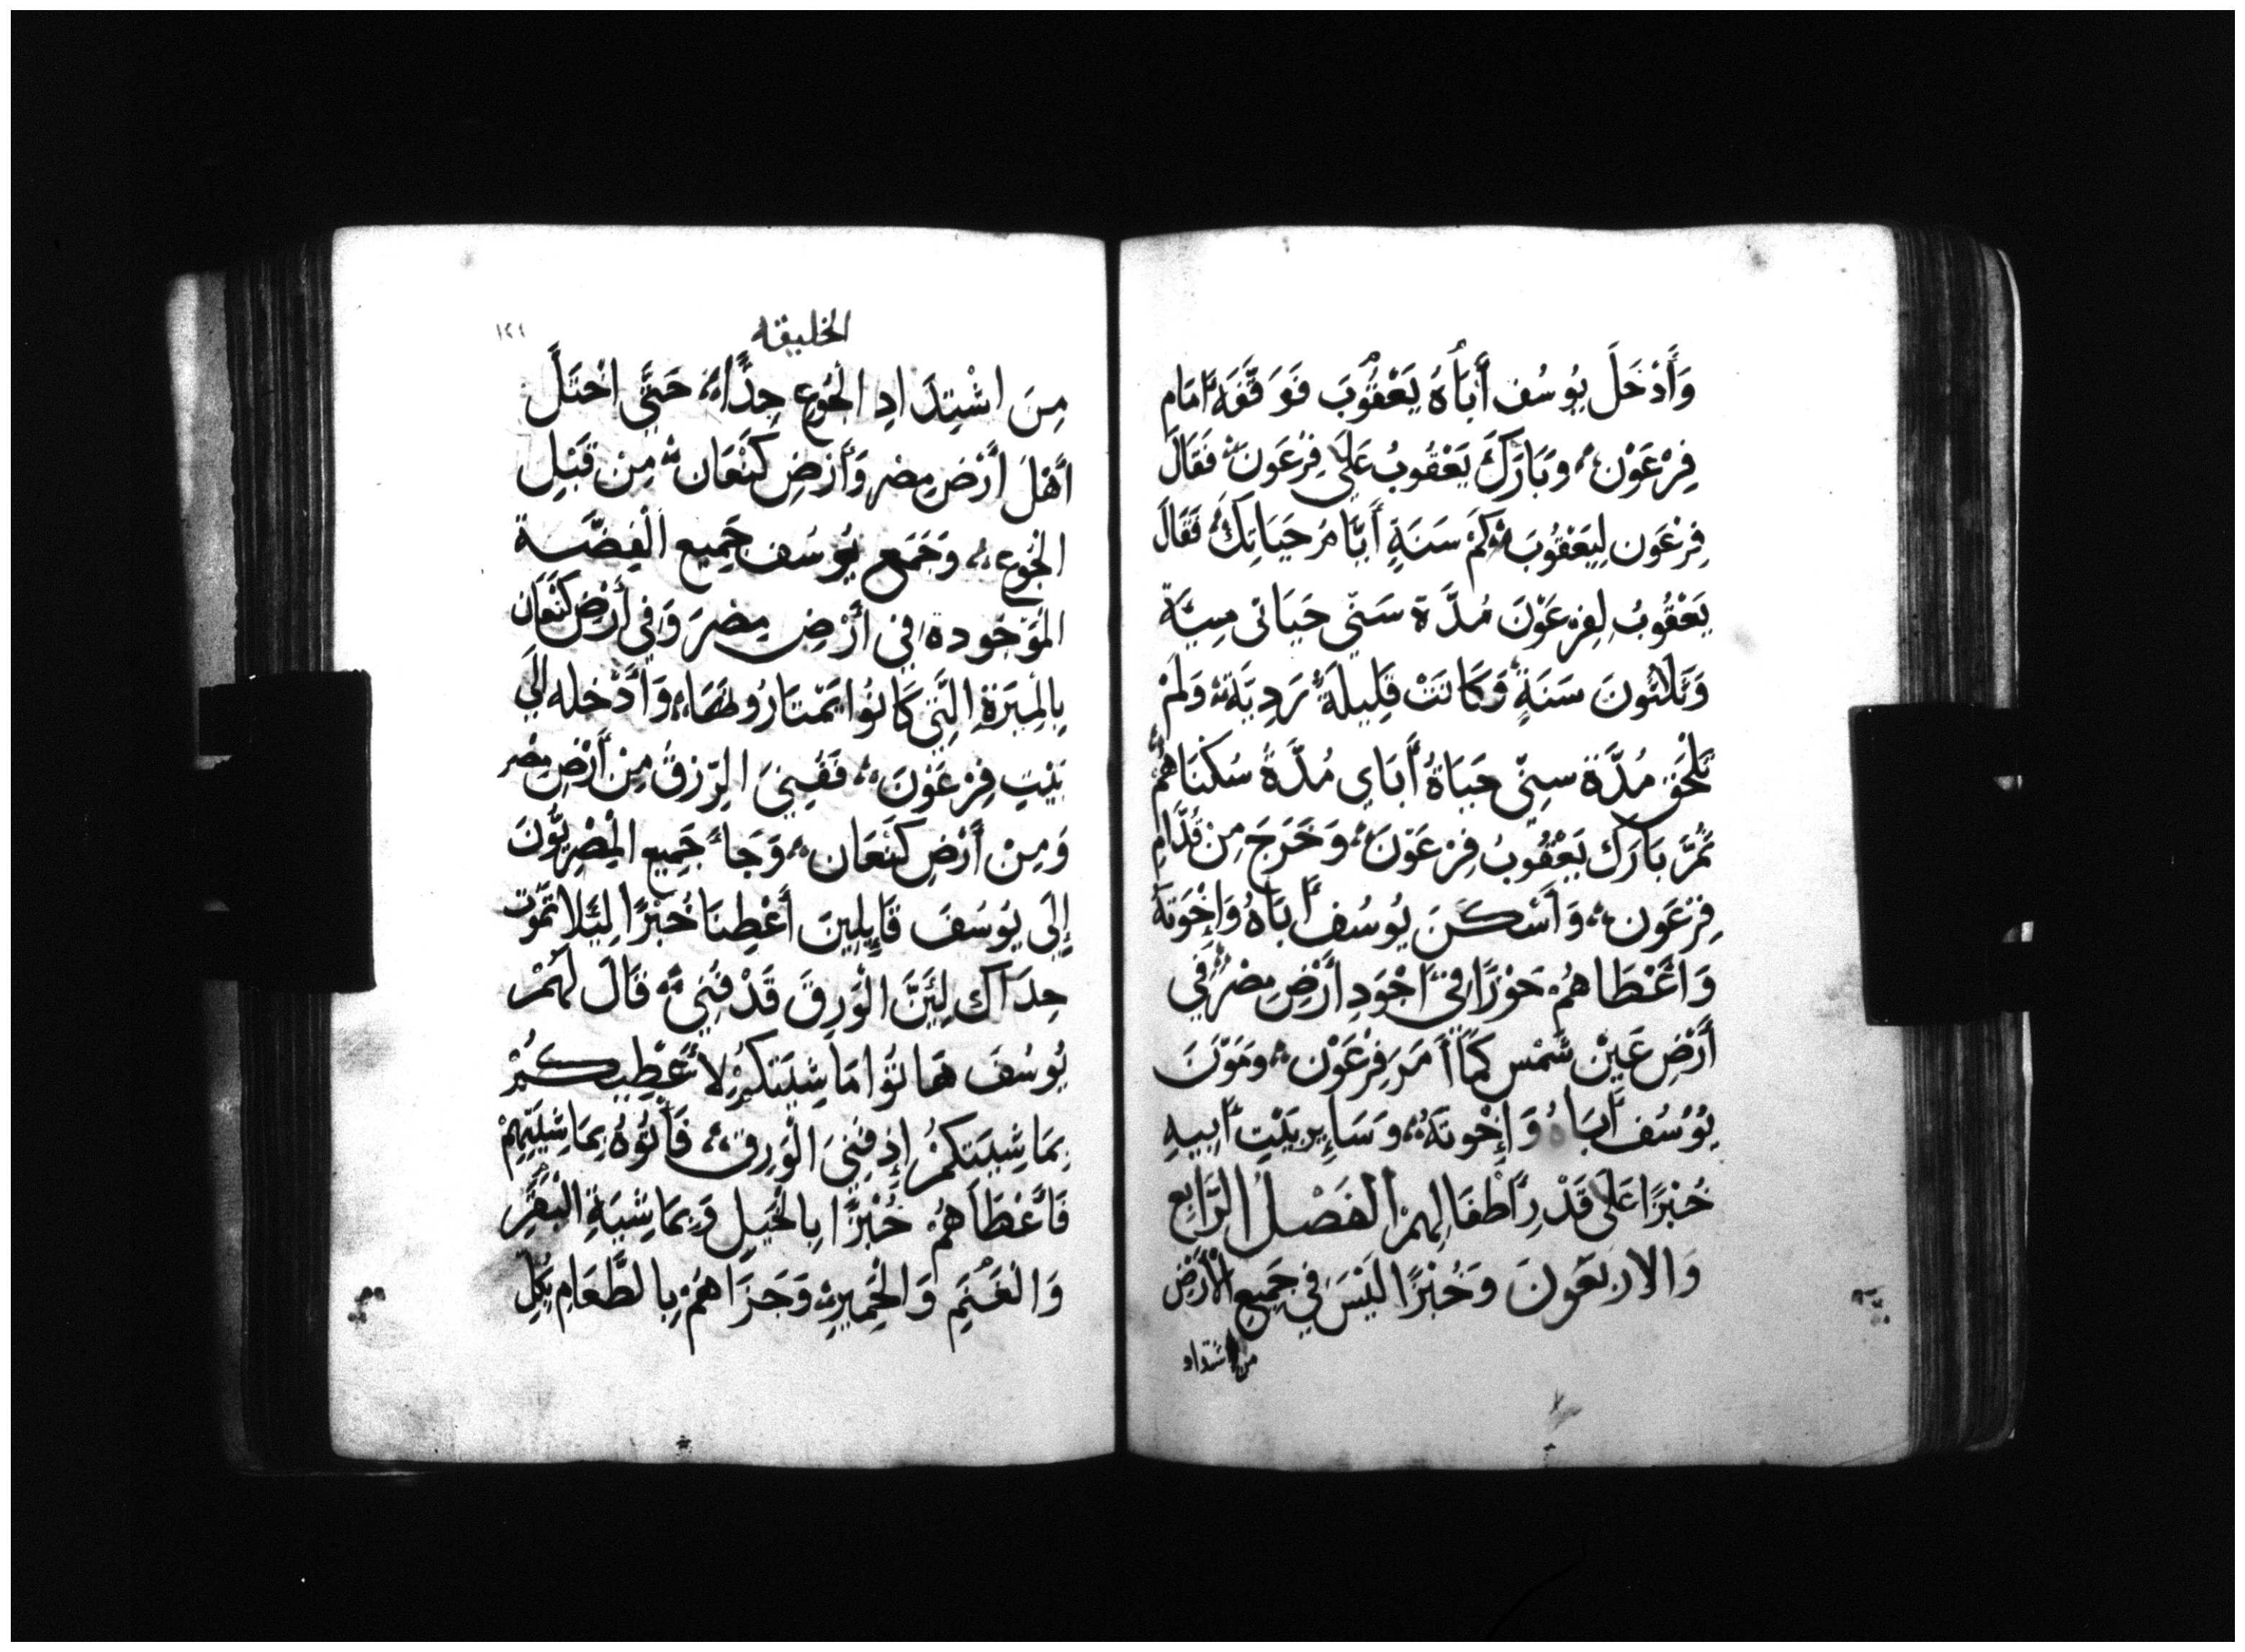 وَأَدْخَلَ يُوسُف أَبَاهُ يَعْقُوبَ فَوَقَّفَهَ أَمَام
فِرْعَوْن وَبَارَكَ يَعْقُوبُ عَلَى فِرْعَونَ فَقَالَ
فِرْعَون لِيَعْقُوبَ كَمْ سَنَةٍ أَيَّامُ حَيَاتِكَ فَقَالَ
يَعْقُوبُ لِفِرْعَوْنَ مُدَّة سَنّي حَيَاتى مِيَّة
وَثَلَاثُونَ سَنَةٍ وَكَانَتْ قَلِيلَةً رَدِيَّة وَلَمْ
تَلْحَق مُدَّة سِنّي حَيَاةُ أَبَاي مُدَّةُ سُكْنَاهُمْ
ثُمَّ بَارَكَ يَعْقُوبُ فِرْعَوْنَ وَخَرَجَ مِنْ قُدَّامِ
فِرْعَون وَأَسْكَنَ يُوسُف أَبَاهُ وَإِخْوَتَهُ
وَأَعْطَاهُمْ حَوْزًا فِي أَجْوَدِ أَرْضِ مِصْر فِي
أَرْضِ عَيْن شَمْس كَمَا أَمَرَ فِرْعَوْن وَمَوَّنَ
يُوْسُف أَبَاهُ وَإِخْوتَهُ وَسَايِر بَيْتِ أَبِيهِ
خُبْزًا عَلَى قَدْرِ أَطْفَالِهِمْ الفَصْلُ الرَّابِع
وَالارْبَعَونَ وَخُبْزًا لَيْسَ فِي جَمِيعِ الْأَرْض
من اشتداد
الخليقه
١٢١
مِنَ اشْتِدَادِ الْجُوعِ جِدًّا حَتَّى اخْتَلَّ
أَهْلَ أَرْضِ مِصْر وَأَرْضِ كَنْعَان مِن قَبْلِ
الْجُوعِ وَجَمَع يُوسُف جَمِيع الْفِضَّة
المَوْجُودة فِي أَرْضِ مِصْرَ وَفِي أَرْضِ كَنْعَان
بِالْمِيَرَةِ الَّتِي كَانُوا يَمْتَارُوهَا وَأَدْخله إِلَى
بَيْتِ فِرْعَوْنَ فَفَنِيَ الرِّزق مِنْ أَرْضِ مِصْر
وَمِنْ أَرْضِ كَنْعَان وَجَاءَ جَمِيع المِصْرِيُّونَ
إِلَى يُوسُفَ قَايِلِينَ أَعْطِنَا خُبْزًا لِئَلَا نَمُوْت
حِدَاكَ لِئَنَّ الْوَرِقَ قَدْ فُنِيَ قَالَ لَهُمْ
يُوسُفَ هَاتُوا مَاشِيَتَكُمْ لأَعْطِيكُمْ
بِمَاشِيَتكُمُ إِذ فَنِيَ الْوَرِق فَأَتُوهُ بِمَاشِيَتِهِمْ
فَأَعْطَاهُمُ خُبْزًا بِالْخَيلِ وَبِمَاشِيَةِ الْبَقَرِ
وَالْغَنَمِ وَالْحَمِيرِ وَجَزَاهُمْ بِالطَّعَامِ بَكُلِّ